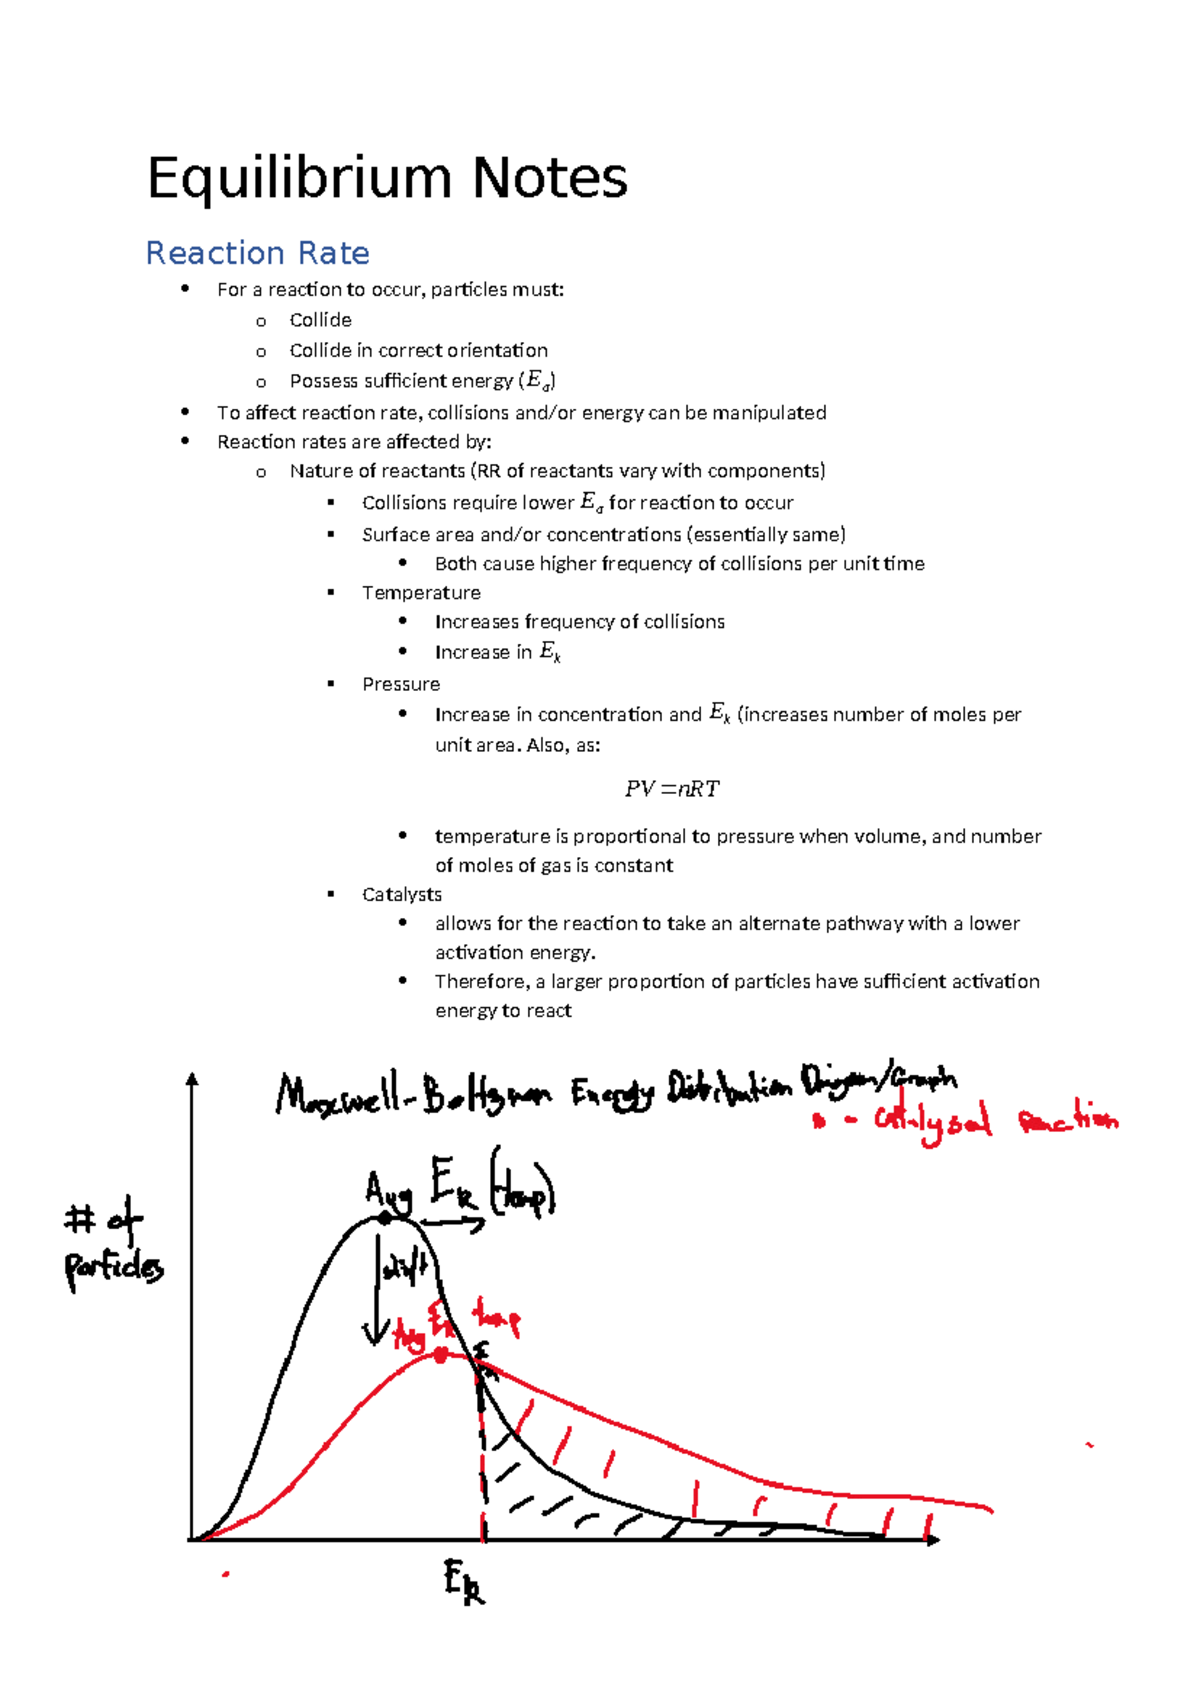 Equilibrium Notes
Reaction Rate
• For a reaction to occur, particles must:
o Collide
o Collide in correct orientation
o Possess sufficient energy (Ea)
• To affect reaction rate, collisions and/or energy can be manipulated
• Reaction rates are affected by:
o Nature of reactants (RR of reactants vary with components)
▪ Collisions require lower Ea for reaction to occur
▪ Surface area and/or concentrations (essentially same)
• Both cause higher frequency of collisions per unit time
▪ Temperature
• Increases frequency of collisions
• Increase in Ek
▪ Pressure
• Increase in concentration and Ek (increases number of moles per
unit area. Also, as:
PV=nRT
• temperature is proportional to pressure when volume, and number
of moles of gas is constant
▪ Catalysts
• allows for the reaction to take an alternate pathway with a lower
activation energy.
• Therefore, a larger proportion of particles have sufficient activation
energy to react
Maxwell-Boltzman Energy Distribution Diagram/Graph
- catalysed reaction
Avg Ek (temp)
# of
particles
shift
Avg Ek temp
Ek